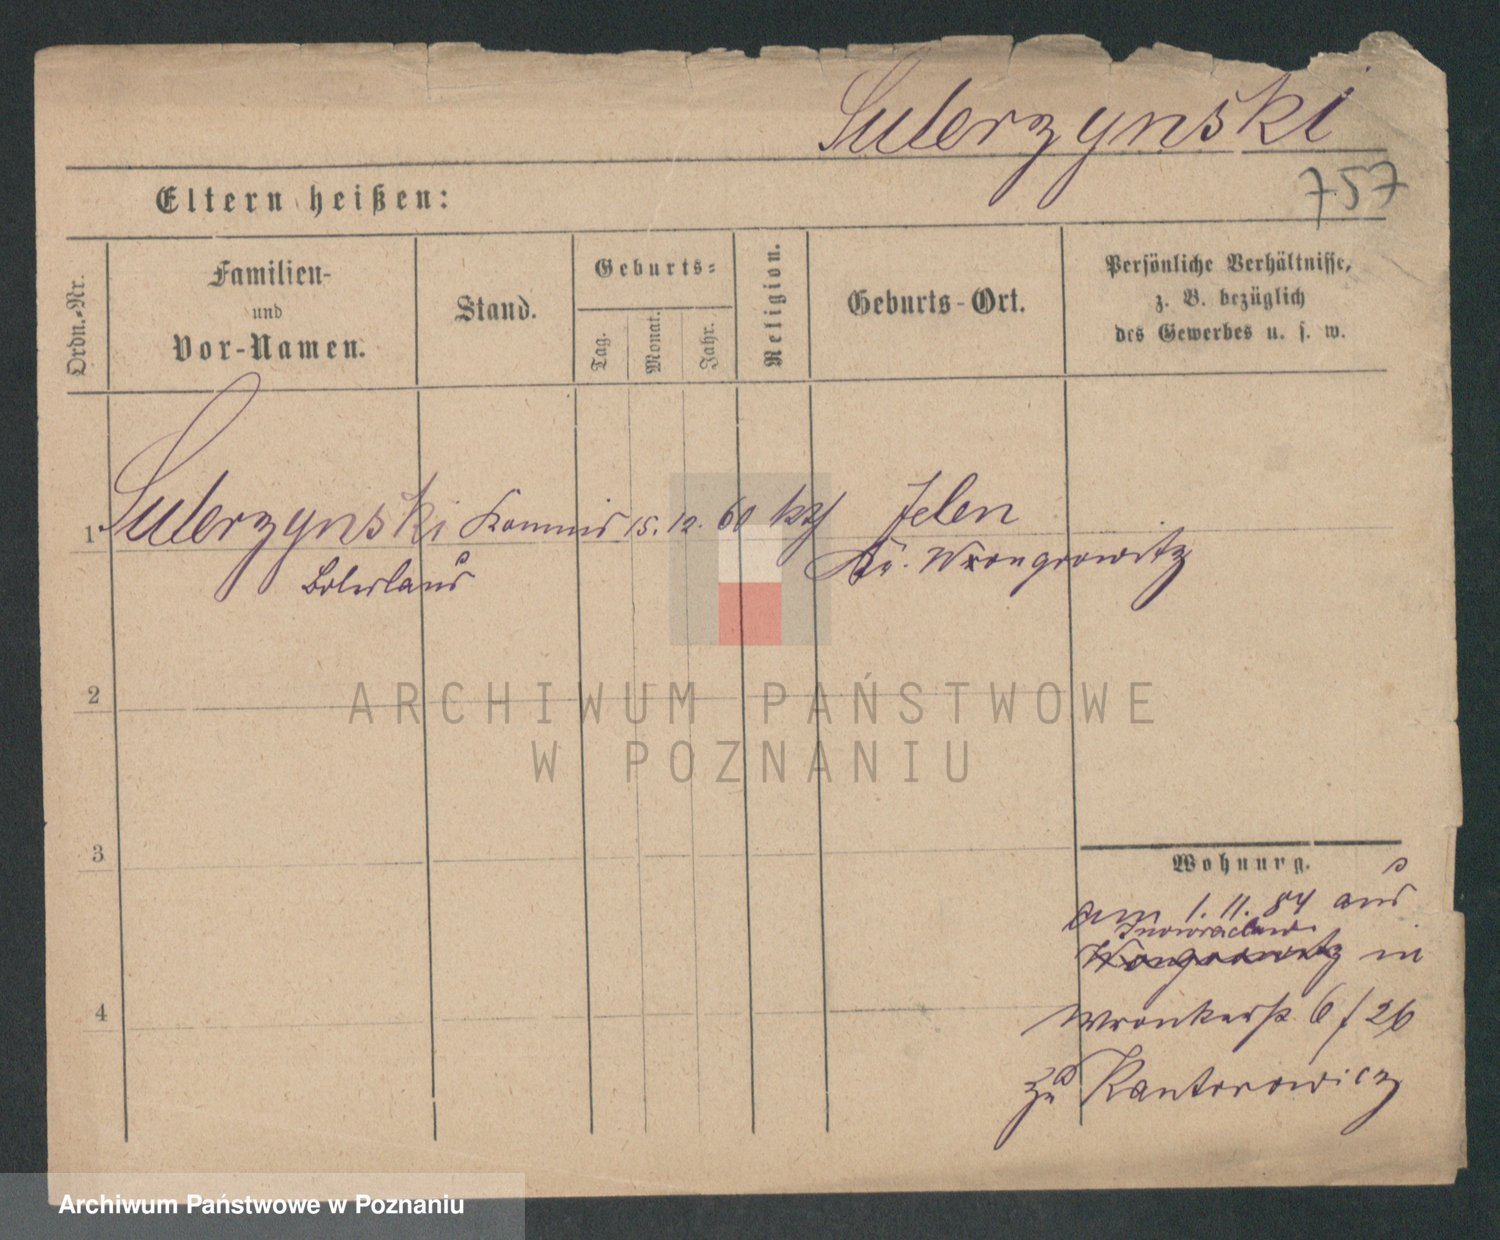 Sulerzynski
757
Eltern heißen:
Ordn.-Nr.
Familien-
und
Vor-Namen.
Stand.
Geburts-
Tag.
Monat.
Jahr.
Religion.
Geburts-Ort.
Persönliche Verhältnisse,
z. B. bezüglich
des Gewerbes u. s. w.
1 Sulerzynski Kommis 15. 12. 60 kth Jelen
Boleslaus Kr. Wrongrowitz
2
ARCHIWUM PAŃSTWOWE
W POZNANIU
3
Wohnung.
am 1. 11. 84 aus
Inowraclaw
Wongrowitz in
4
Wronkerstr. 6 / 26
zu Kantorowicz
Archiwum Państwowe w Poznaniu